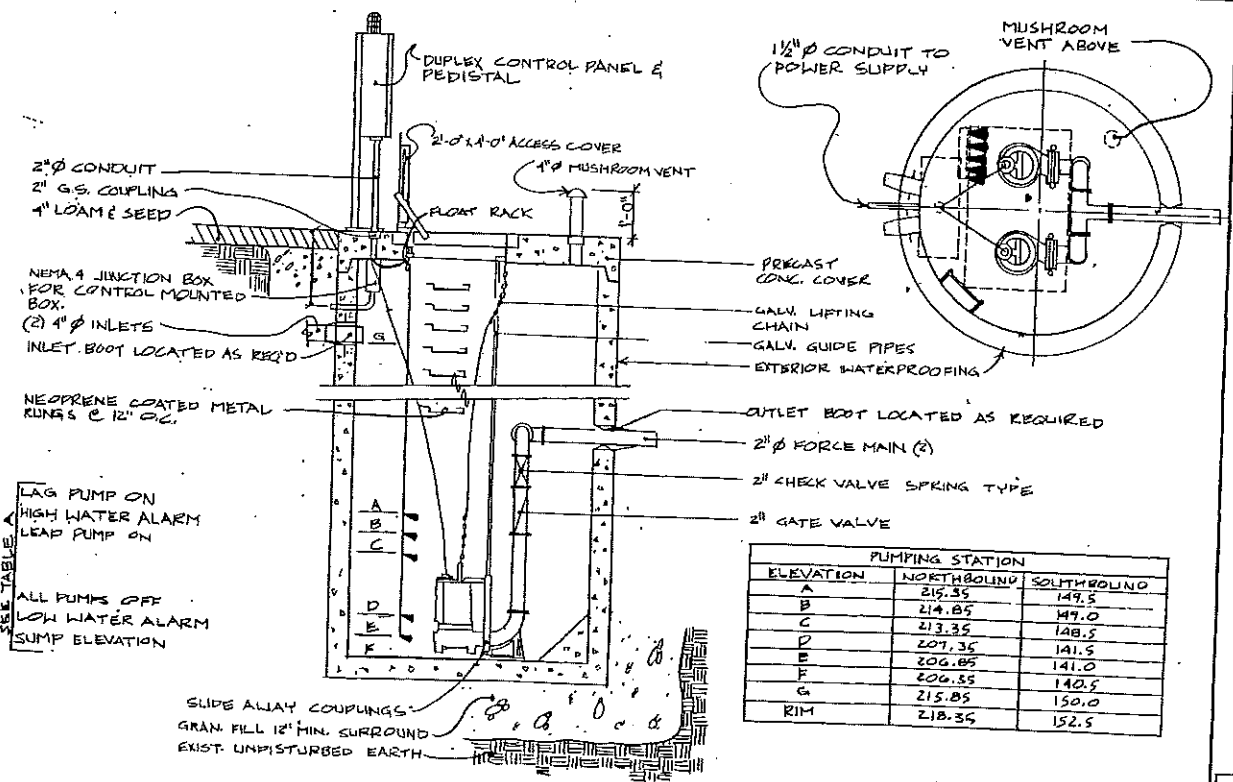 DUPLEX CONTROL PANEL &
PEDISTAL
2'-0" x 4'-0" ACCESS COVER
4"Ø MUSHROOM VENT
1'-0"
2"Ø CONDUIT
2" G.S. COUPLING
4" LOAM & SEED
FLOAT RACK
NEMA 4 JUNCTION BOX
FOR CONTROL MOUNTED
BOX.
(2) 4"Ø INLETS
INLET BOOT LOCATED AS REQ'D
G
NEOPRENE COATED METAL
RUNGS @ 12" O.C.
PRECAST
CONC. COVER
GALV. LIFTING
CHAIN
GALV. GUIDE PIPES
EXTERIOR WATERPROOFING
OUTLET BOOT LOCATED AS REQUIRED
2"Ø FORCE MAIN (2)
2" CHECK VALVE SPRING TYPE
2" GATE VALVE
SEE TABLE A
LAG PUMP ON
HIGH WATER ALARM
LEAD PUMP ON
ALL PUMPS OFF
LOW WATER ALARM
SUMP ELEVATION
A
B
C
D
E
F
SLIDE AWAY COUPLINGS
GRAN. FILL 12" MIN. SURROUND
EXIST. UNDISTURBED EARTH
1½"Ø CONDUIT TO
POWER SUPPLY
MUSHROOM
VENT ABOVE
PUMPING STATION
ELEVATION NORTHBOUND SOUTHBOUND
A 215.35 149.5
B 214.85 149.0
C 213.35 148.5
D 207.35 141.5
E 206.85 141.0
F 206.35 140.5
G 215.85 150.0
RIM 218.35 152.5